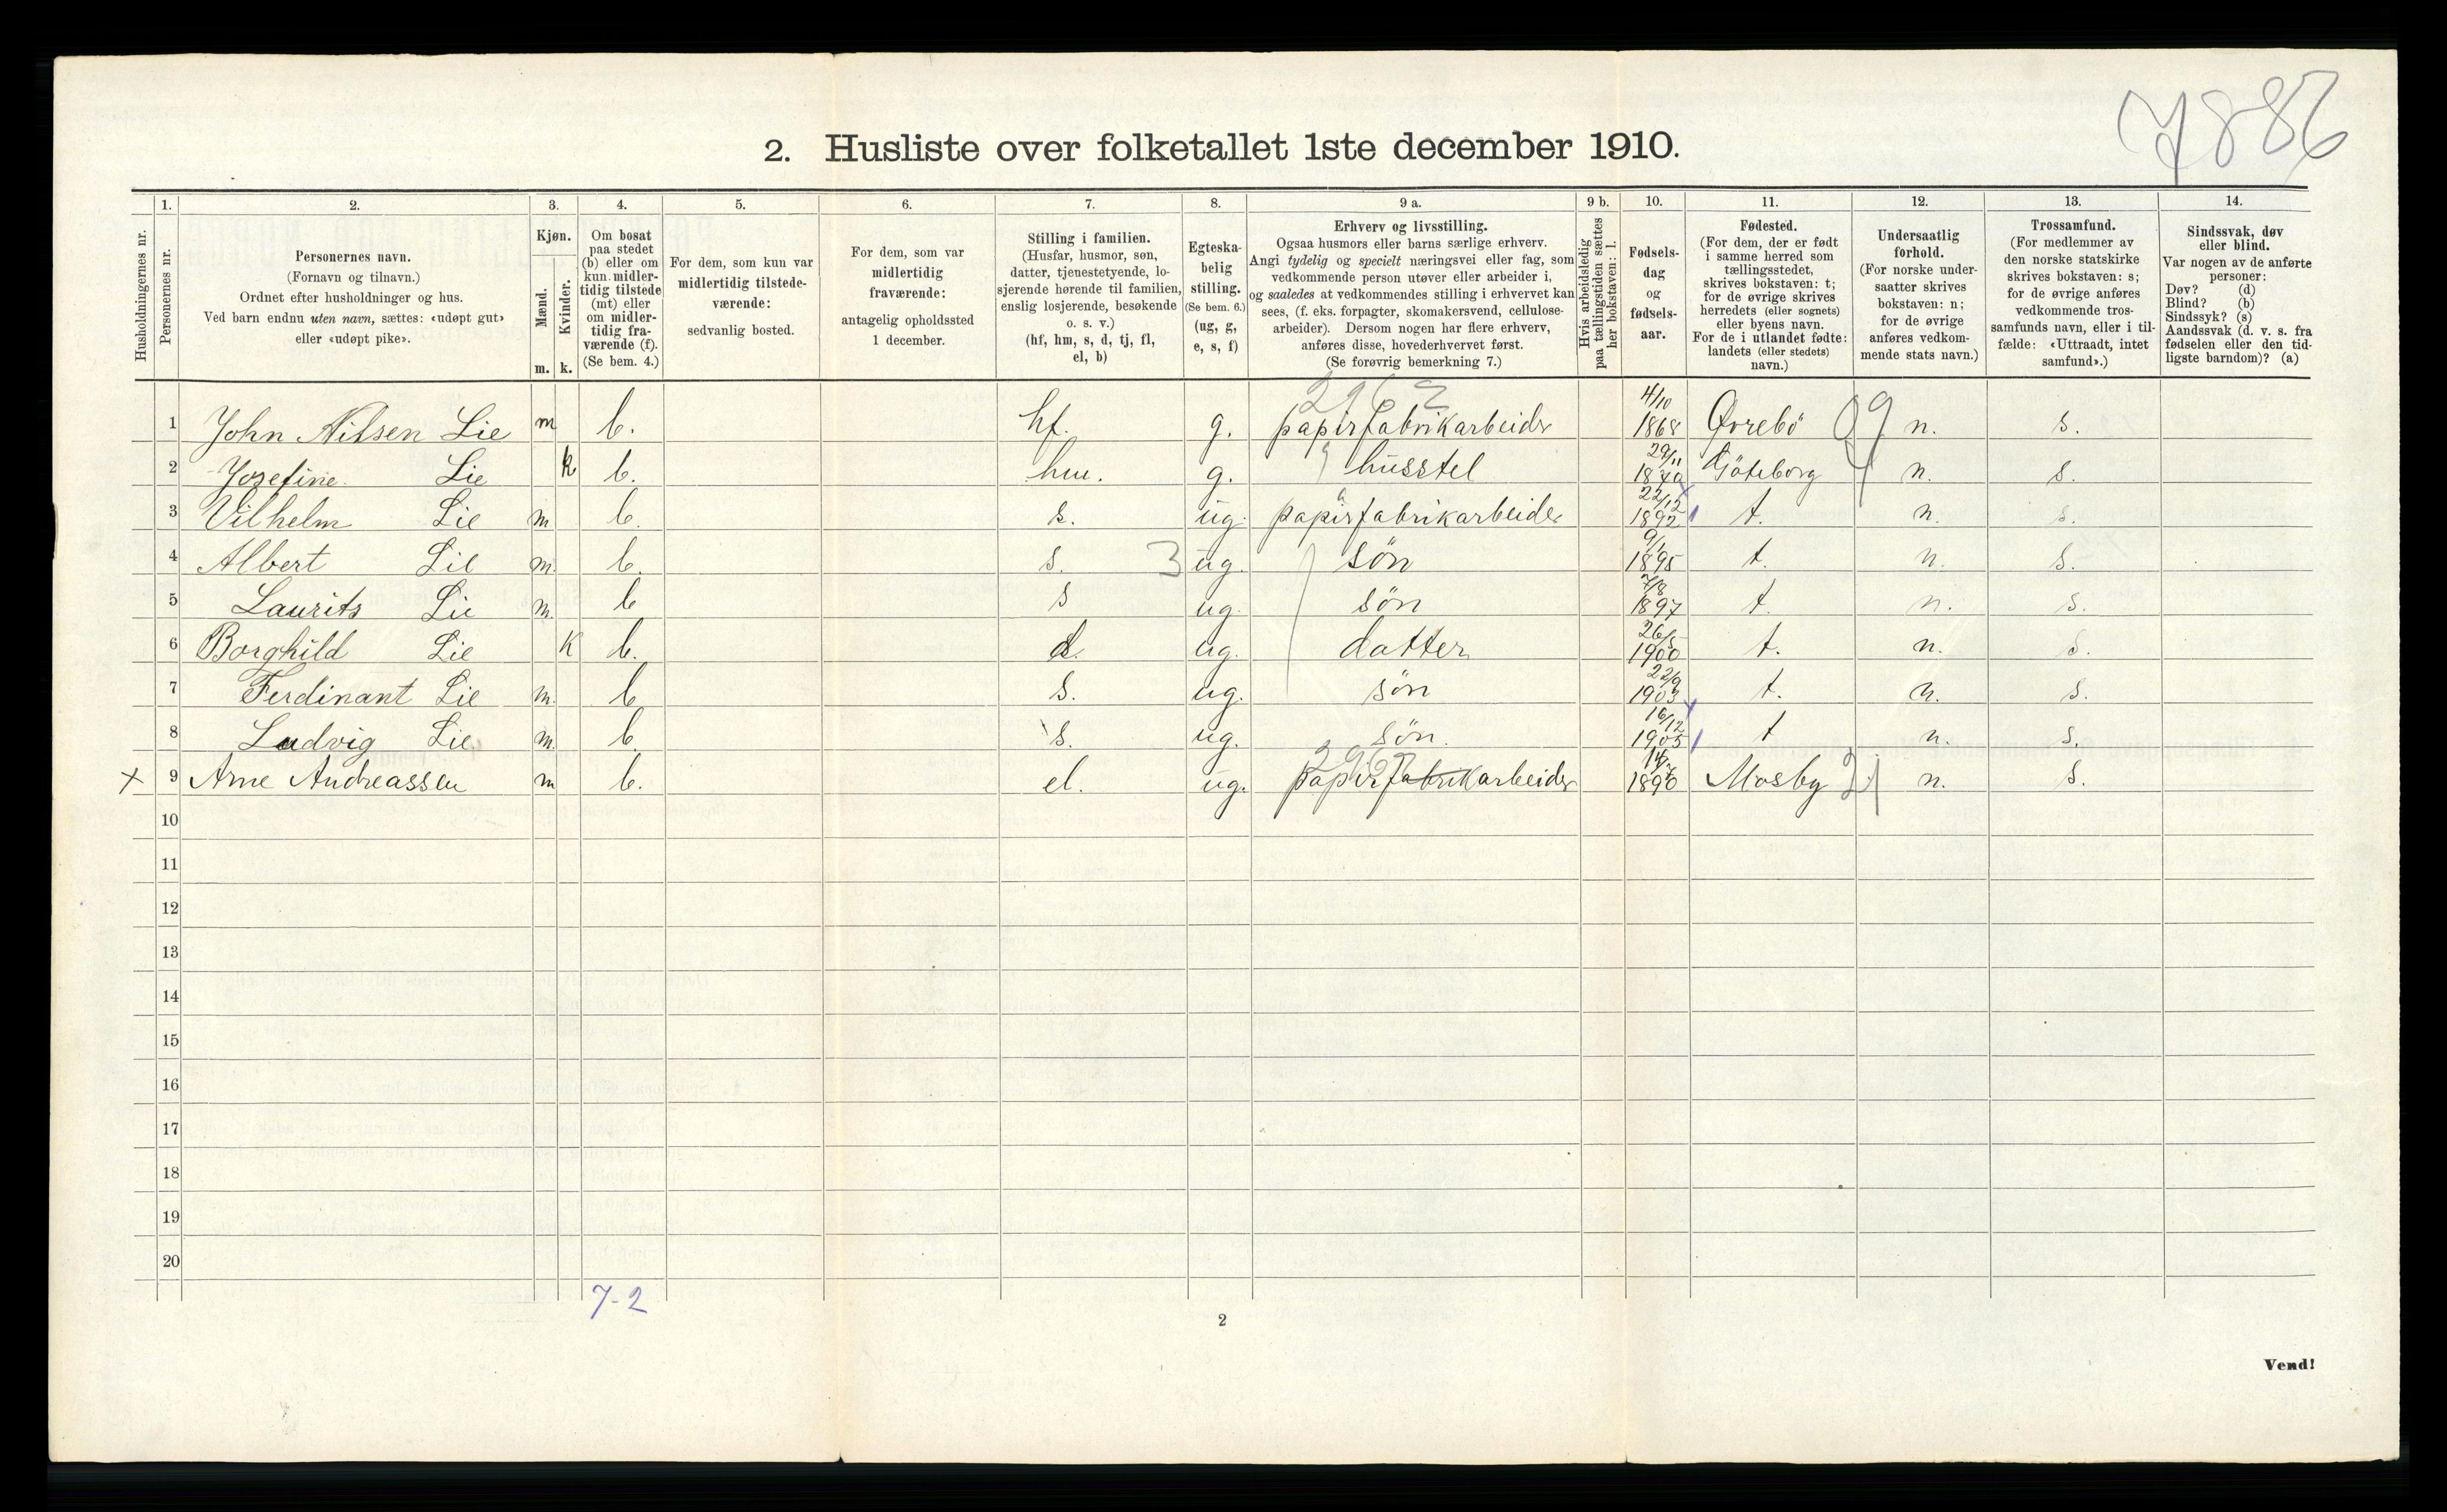 7886
2. Husliste over folketallet 1ste december 1910.
Husholdningernes nr.
1. Personernes nr.
2. Personernes navn. (Fornavn og tilnavn.) Ordnet efter husholdninger og hus. Ved barn endnu uten navn, sættes: «udøpt gut» eller «udøpt pike».
3. Kjøn. Mænd. Kvinder. m. k.
4. Om bosat paa stedet (b) eller om kun midlertidig tilstede (mt) eller om midlertidig fraværende (f). (Se bem. 4.)
5. For dem, som kun var midlertidig tilstedeværende: sedvanlig bosted.
6. For dem, som var midlertidig fraværende: antagelig opholdssted 1 december.
7. Stilling i familien. (Husfar, husmor, søn, datter, tjenestetyende, losjerende hørende til familien, enslig losjerende, besøkende o. s. v.) (hf, hm, s, d, tj, fl, el, b)
8. Egteskabelig stilling. (Se bem. 6.) (ug, g, e, s, f)
9 a. Erhverv og livsstilling. Ogsaa husmors eller barns særlige erhverv. Angi tydelig og specielt næringsvei eller fag, som vedkommende person utøver eller arbeider i, og saaledes at vedkommendes stilling i erhvervet kan sees, (f. eks. forpagter, skomakersvend, cellulosearbeider). Dersom nogen har flere erhverv, anføres disse, hovederhvervet først. (Se forøvrig bemerkning 7.)
9 b. Hvis arbeidsledig paa tællingstiden sættes her bokstaven: l.
10. Fødselsdag og fødselsaar.
11. Fødested. (For dem, der er født i samme herred som tællingsstedet, skrives bokstaven: t; for de øvrige skrives herredets (eller sognets) eller byens navn. For de i utlandet fødte: landets (eller stedets) navn.)
12. Undersaatlig forhold. (For norske undersaatter skrives bokstaven: n; for de øvrige anføres vedkommende stats navn.)
13. Trossamfund. (For medlemmer av den norske statskirke skrives bokstaven: s; for de øvrige anføres vedkommende trossamfunds navn, eller i tilfælde: «Uttraadt, intet samfund».)
14. Sindssvak, døv eller blind. Var nogen av de anførte personer: Døv? (d) Blind? (b) Sindssyk? (s) Aandssvak (d. v. s. fra fødselen eller den tidligste barndom)? (a)
1 John Nilsen Lie m b. hf. g. papirfabrikarbeider 4/10 1868 Øvrebö 09 n. s.
2 Josefine Lie k b. hm. g. husstel 29/11 1870 Göteborg n. s.
3 Vilhelm Lie m b. s. ug. papirfabrikarbeider 22/12 1892 t. n. s.
4 Albert Lie m. b. s. 3 ug. sön 9/1 1895 t. n. s.
5 Laurits Lie m. b s ug. sön 7/8 1897 t. n. s.
6 Borghild Lie k b. d. ug. datter 26/5 1900 t. n. s.
7 Ferdinant Lie m. b s. ug. sön 22/9 1903 t. n. s.
8 Ludvig Lie m. b s. ug. sön. 16/12 1905 t n. s.
x 9 Arne Andreassen m b. el. ug. papirfabrikarbeider 1890 Mosby n. s.
10
11
12
13
14
15
16
17
18
19
20
7-2
2
Vend!